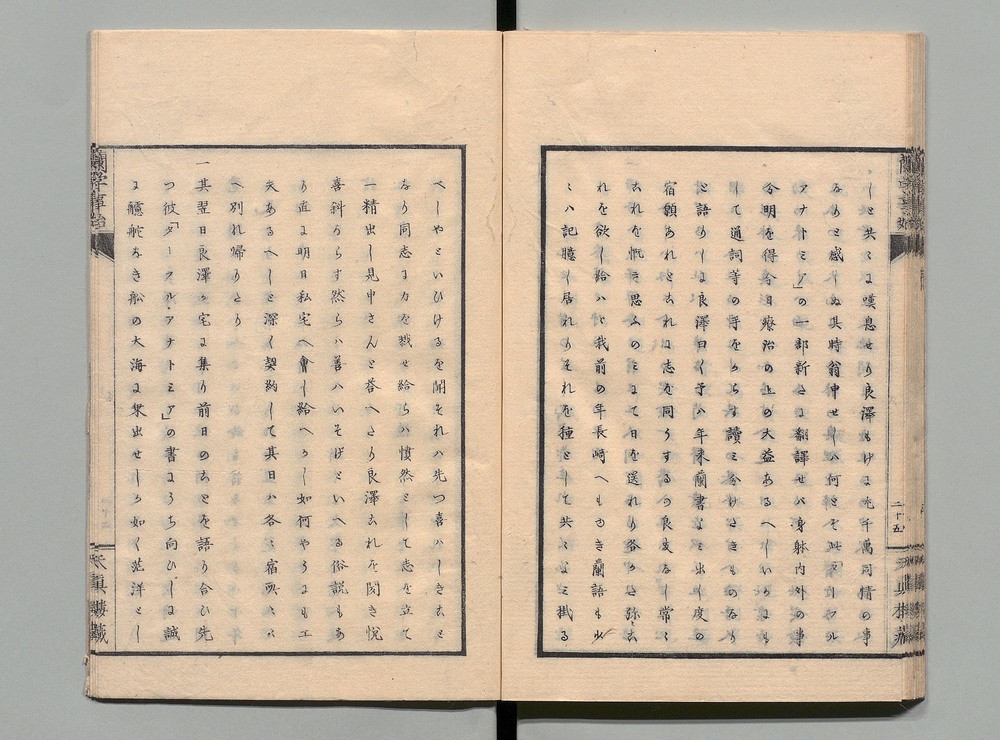 しと共々に嘆息せり良澤もけに尤千萬同情の事
なりと感しぬ其時翁申せしハ何とそ此「ターフル
アナトミア」の一部新たに翻譯せハ身躰内外の事
分明を得今日療治の上の大益あるへしいかにも
して通詞等の手をからす讀ミ分けたきものなり
と語りしに良澤曰く予ハ年来蘭書よミ出し度の
宿願あれとこれに志を同うするの良友なし常々
これを慨き思ふのミにて日を送れり各かた弥これ
を欲し給ハヽ我前の年長崎へもゆき蘭語も少
々ハ記臆し居れりそれを種として共々よミ掛る
へしやといひけるを聞それハ先つ喜ハしきこと
なり同志に力を戮せ給らハ憤然として志を立て
一精出し見申さんと答へたり良澤これを聞き悦
喜斜ならす然らハ善ハいそけといへる俗説もあ
り直に明日私宅へ會し給へかし如何やうにも工
夫あるへしと深く契約して其日ハ各々宿所々々
へ別れ帰りたり
一 其翌日良澤か宅に集り前日のことを語り合ひ先
つ彼「ターフル・アナトミア」の書にうち向ひしに誠
に艫舵なき船の大海に乗出せしか如く茫洋とし
蘭學事始
二十五
天真樓蔵